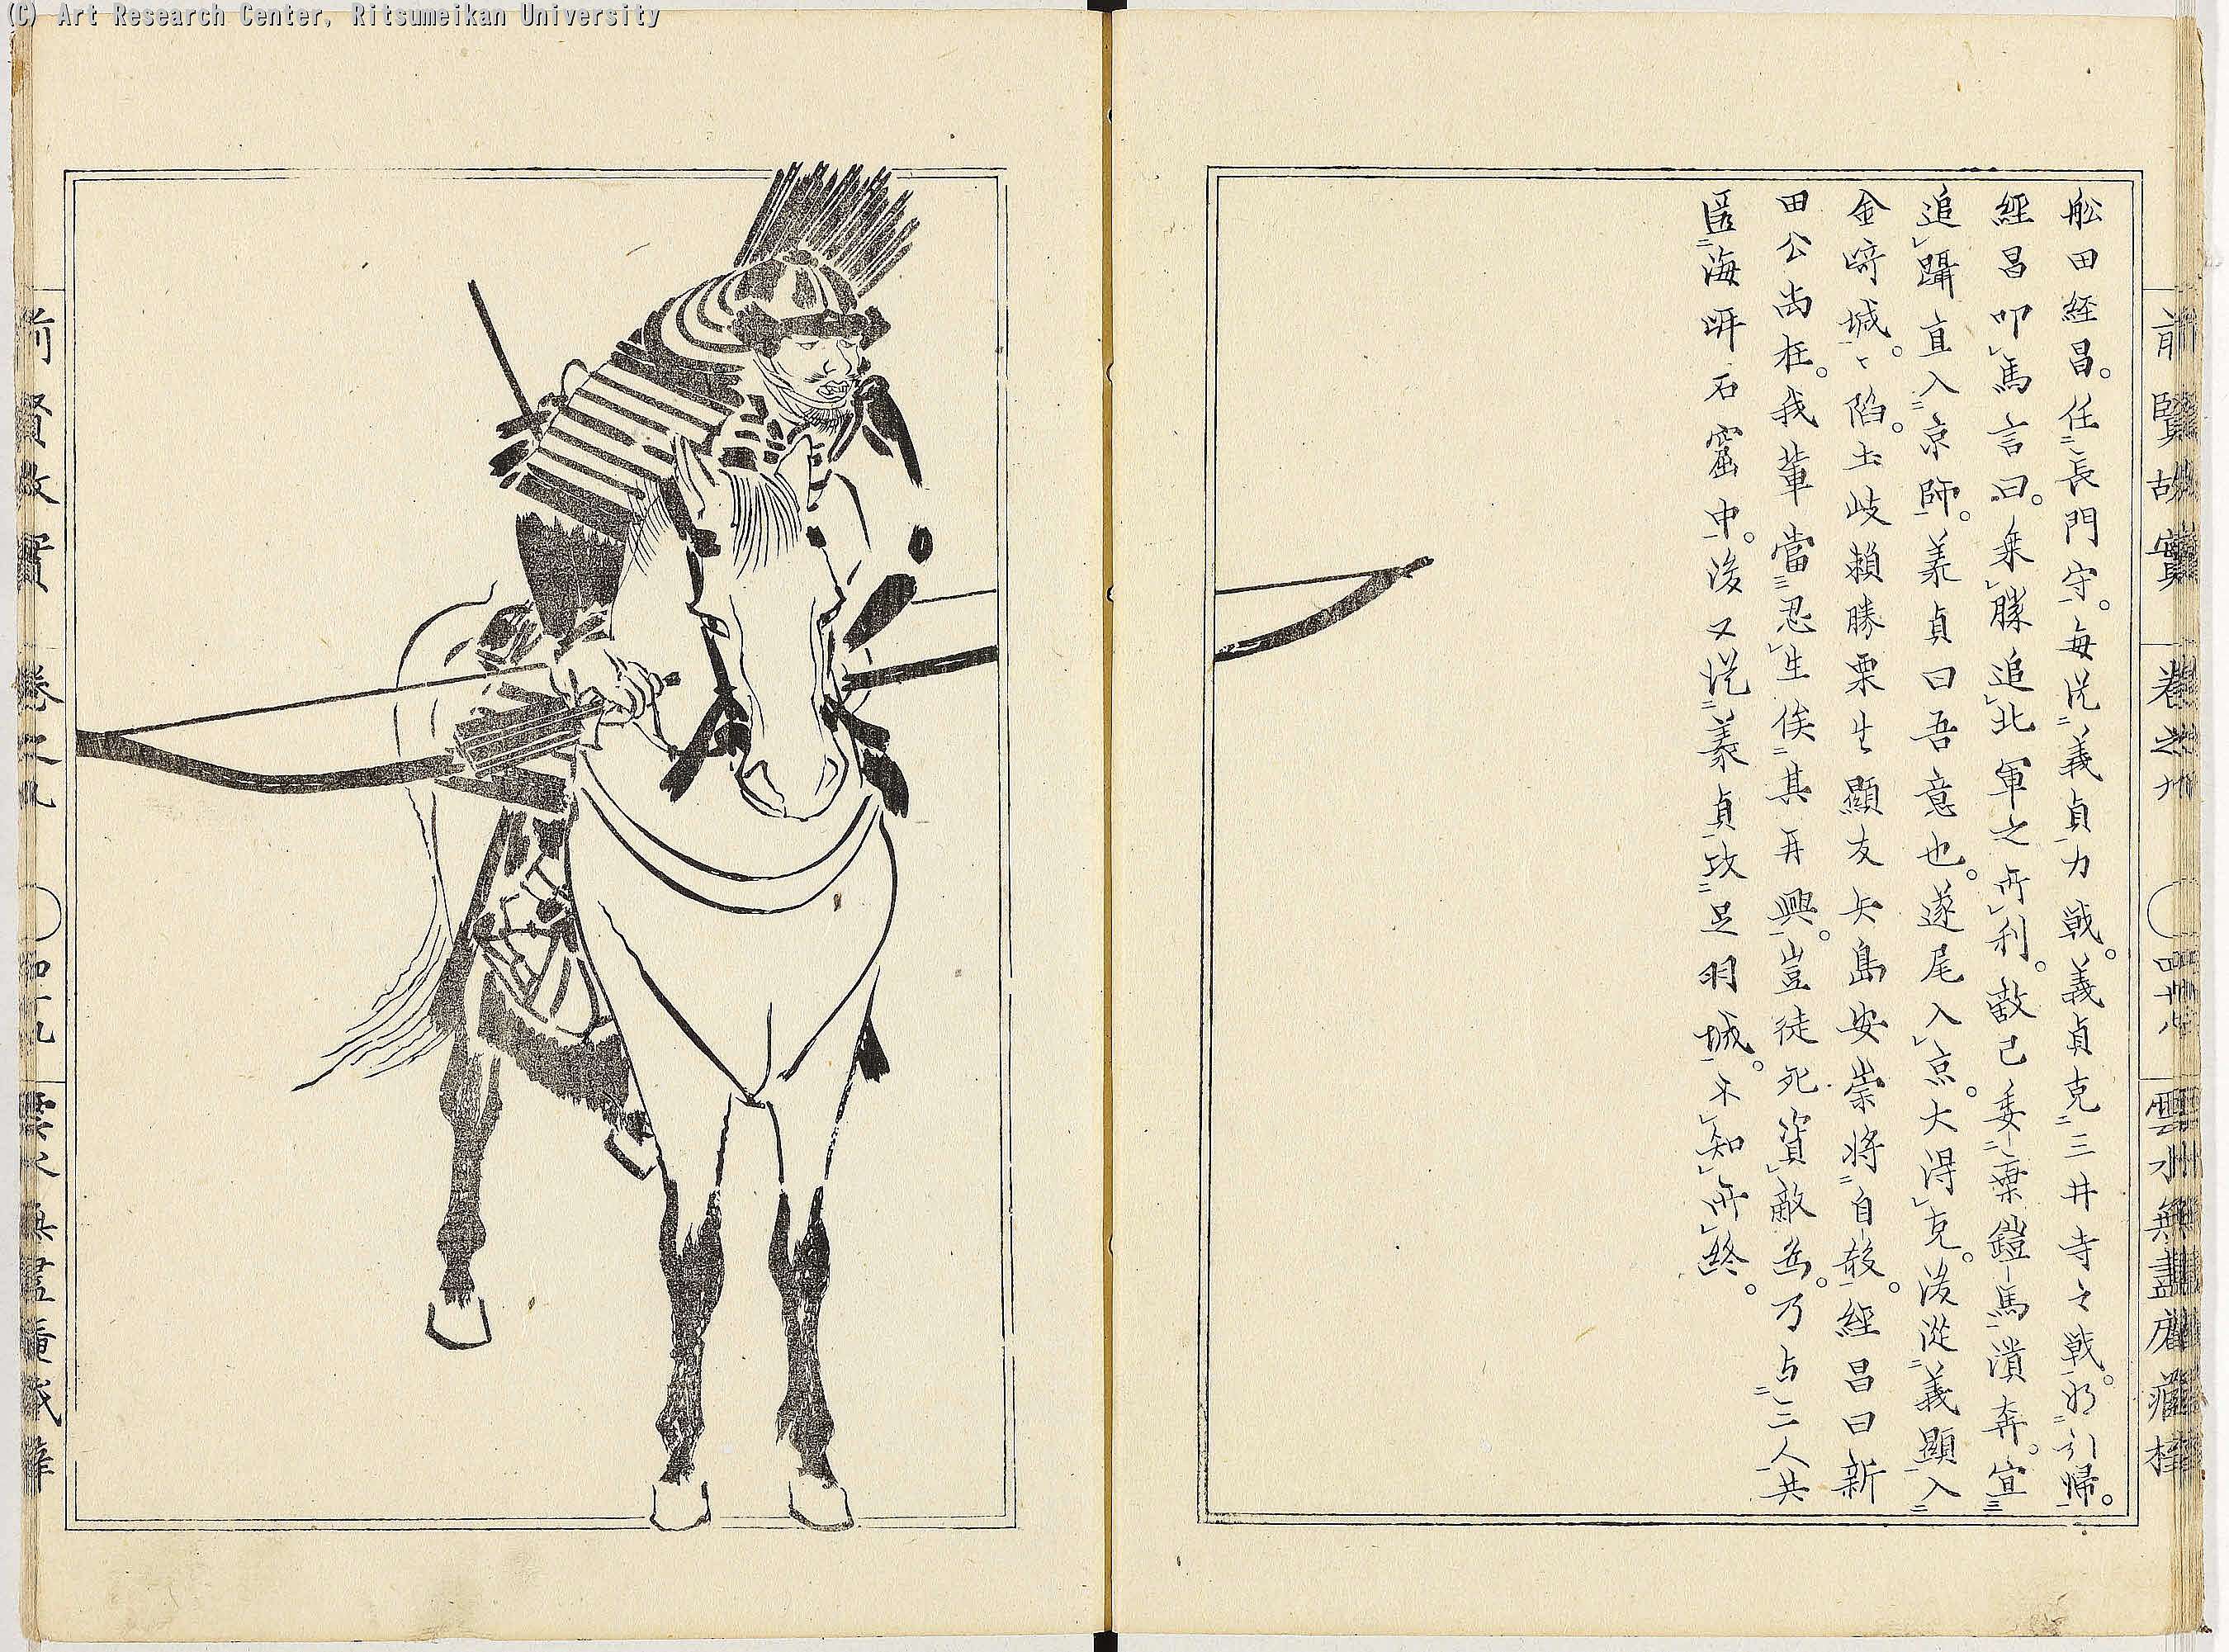 (C) Art Research Center, Ritsumeikan University
前賢故實 卷之九 雲水無盡庵藏梓
舩田経昌。任長門守。毎従義貞力戰。義貞克三井寺々戰。将引帰。
經昌叩馬言曰。乗勝追北軍之所利。敵已委棄鎧馬潰奔。宜
追躡直入京師。義貞曰吾意也。遂尾入京。大得克。後從義顯入
金﨑城。〻陥。土岐頼勝栗生顯友矢島安崇将自殺。經昌曰新
田公尚在。我輩當忍生俟其再興。豈徒死資敵為。乃与三人共
匿海岍石窟中。後又従義貞攻足羽城。不知所終。
前賢故實 卷之九 四十九 雲水無盡庵藏梓